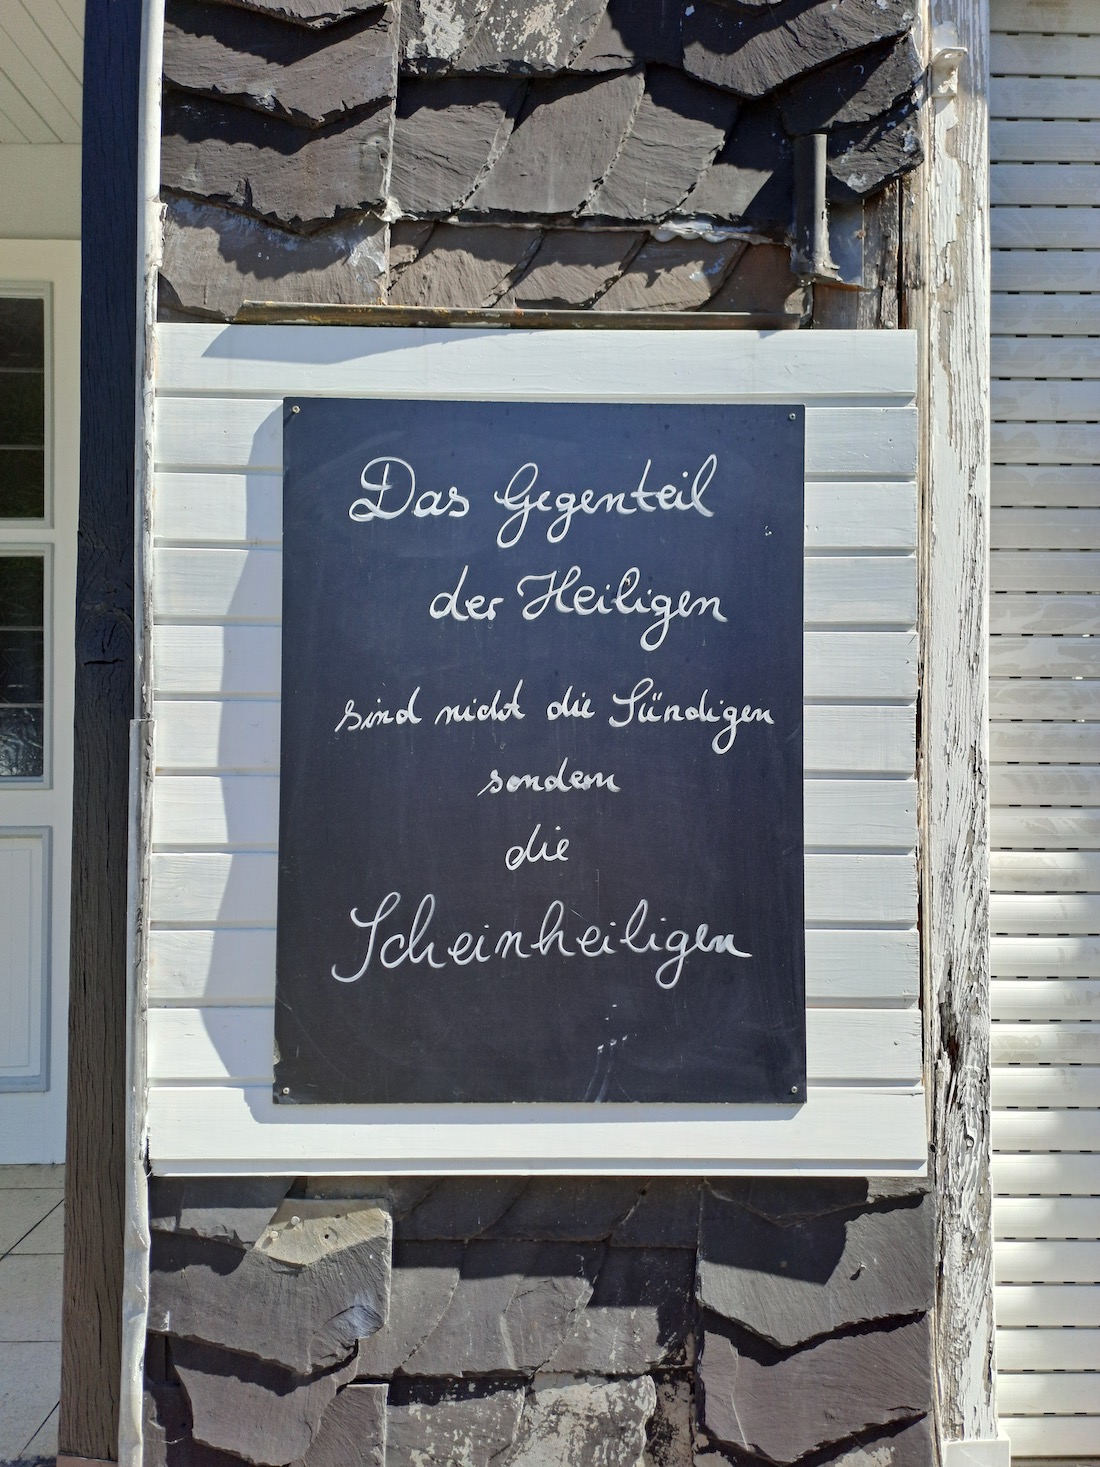 Das Gegenteil
der Heiligen
sind nicht die Sündigen
sondern
die
Scheinheiligen